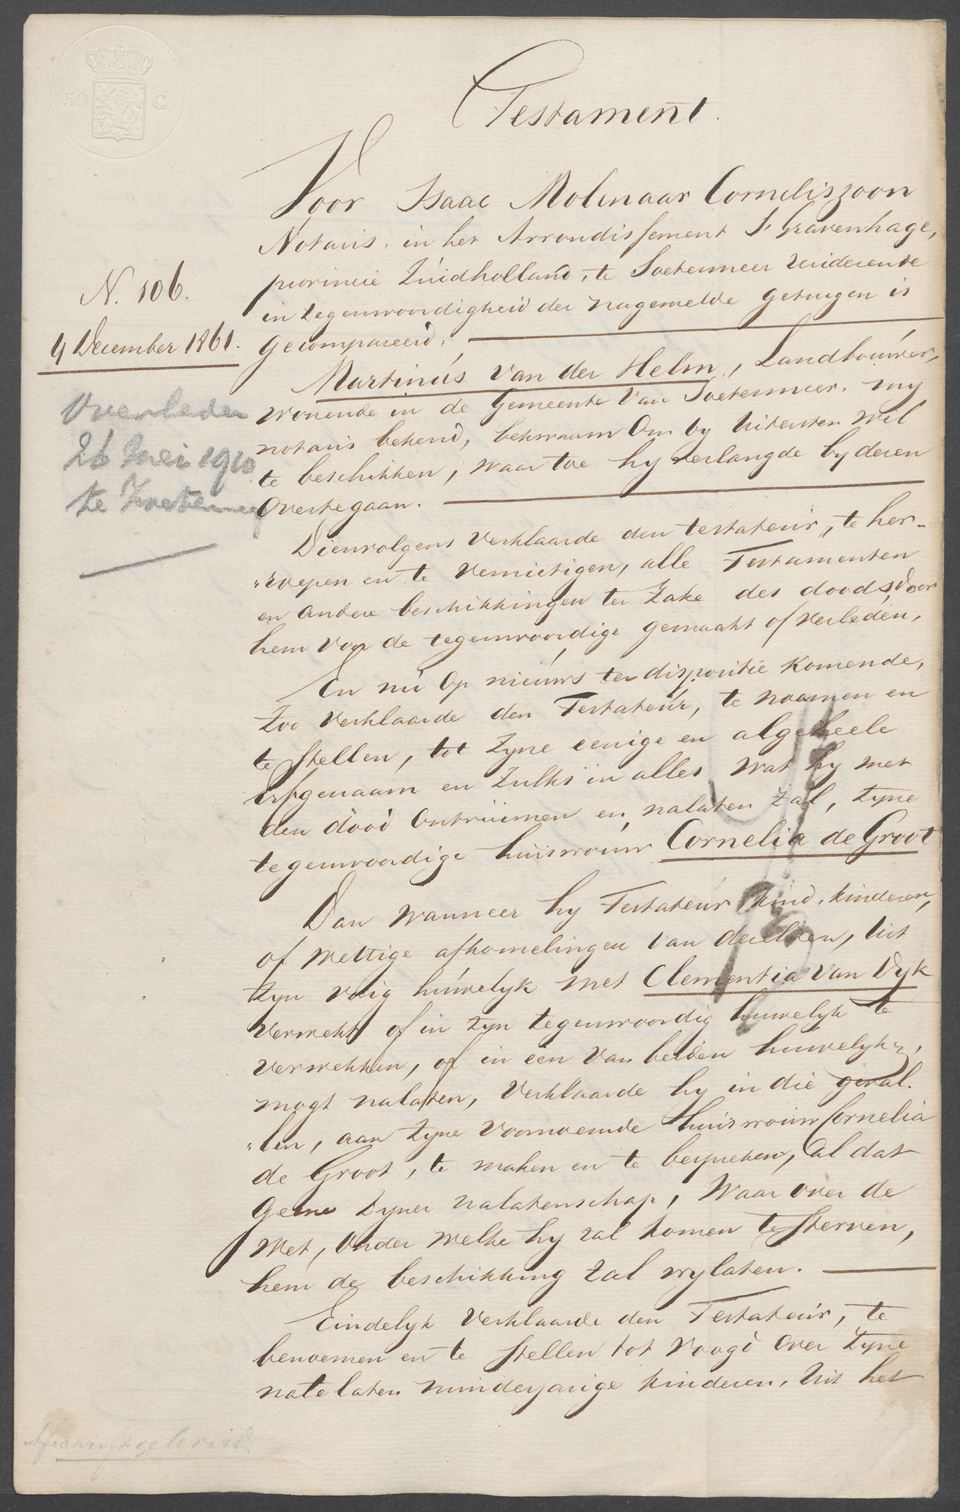 50 C.
Testament.
Voor Isaac Molenaar Corneliszoon
Notaris, in het Arrondissement S'Gravenhage,
provincie Zuidholland, te Soetermeer resideerende
in tegenwoordigheid der nagemelde getuigen is
gecompareerd,
N. 106.
4 December 1861.
Overleden
26 Mei 1910
te Zoetermeer
Martinus van der Helm, Landbouwer,
wonende in de Gemeente van Soetermeer, my
notaris bekend, bekwaam om by Uitersten wil
te beschikken, waar toe hy verlangde by deren
overtegaan.
Dienvolgens verklaarde den testateur, te her-
"roepen en te vernietigen, alle Testamenten
en andere beschikkingen ter zake des doods, door
hem voor de tegenwoordige gemaakt of verleden,
En nu op nieuws ter dispositie komende,
zoo verklaarde den Testateur, te noemen en
te stellen, tot zyne eenige en algeheele
Erfgenaam en zulks in alles wat hy met
den dood ontruimen en nalaten zal, zyne
tegenwoordige huisvrouw Cornelia de Groot
Dan wanneer hy Testateur kind, kinderen,
of wettige afkomelingen van dezelven, uit
zyn vorig huwelyk met Clementia van Dyk
verwekt of in zyn tegenwoordig huwelyk te
verwekken, of in een van beiden huwelyken,
mogt nalaten, verklaarde hy in die geval-
"len, aan zyne voornoemde huisvrouw Cornelia
de Groot, te maken en te bespreken, al dat
gene zyner nalatenschap, waar over de
wet, onder welke hy zal komen te sterven,
hem de beschikking zal vrylaten.
Eindelyk verklaarde den Testateur, te
benoemen en te stellen tot voogd over zyne
natelaten minderjarige kinderen, uit het
Afschrift geleverd.